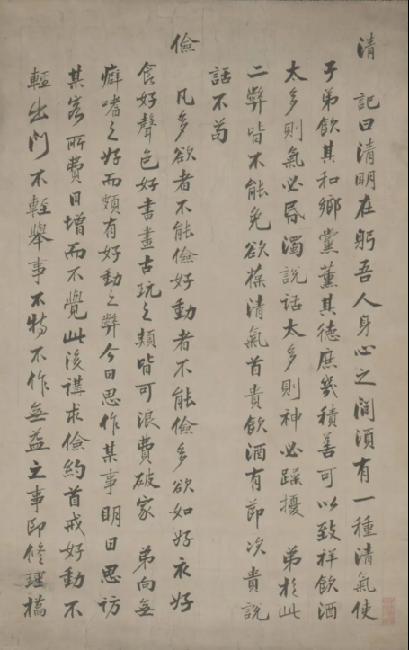 清 記曰清明在躬吾人身心之間須有一種清氣使
子弟飲其和鄉黨薰其德庶幾積善可以致祥飲酒
太多則氣必昏濁說話太多則神必躁擾 弟於此
二弊皆不能免欲葆清氣首貴飲酒有節次貴說
話不苟
儉 凡多欲者不能儉好動者不能儉多欲如好衣好
食好聲色好書畫古玩之類皆可浪費破家 弟向無
癖嗜之好而頗有好動之弊今日思作某事明日思訪
某客所費日增而不覺此後講求儉約首戒好動不
輕出門不輕舉事不特不作無益之事即修理橋